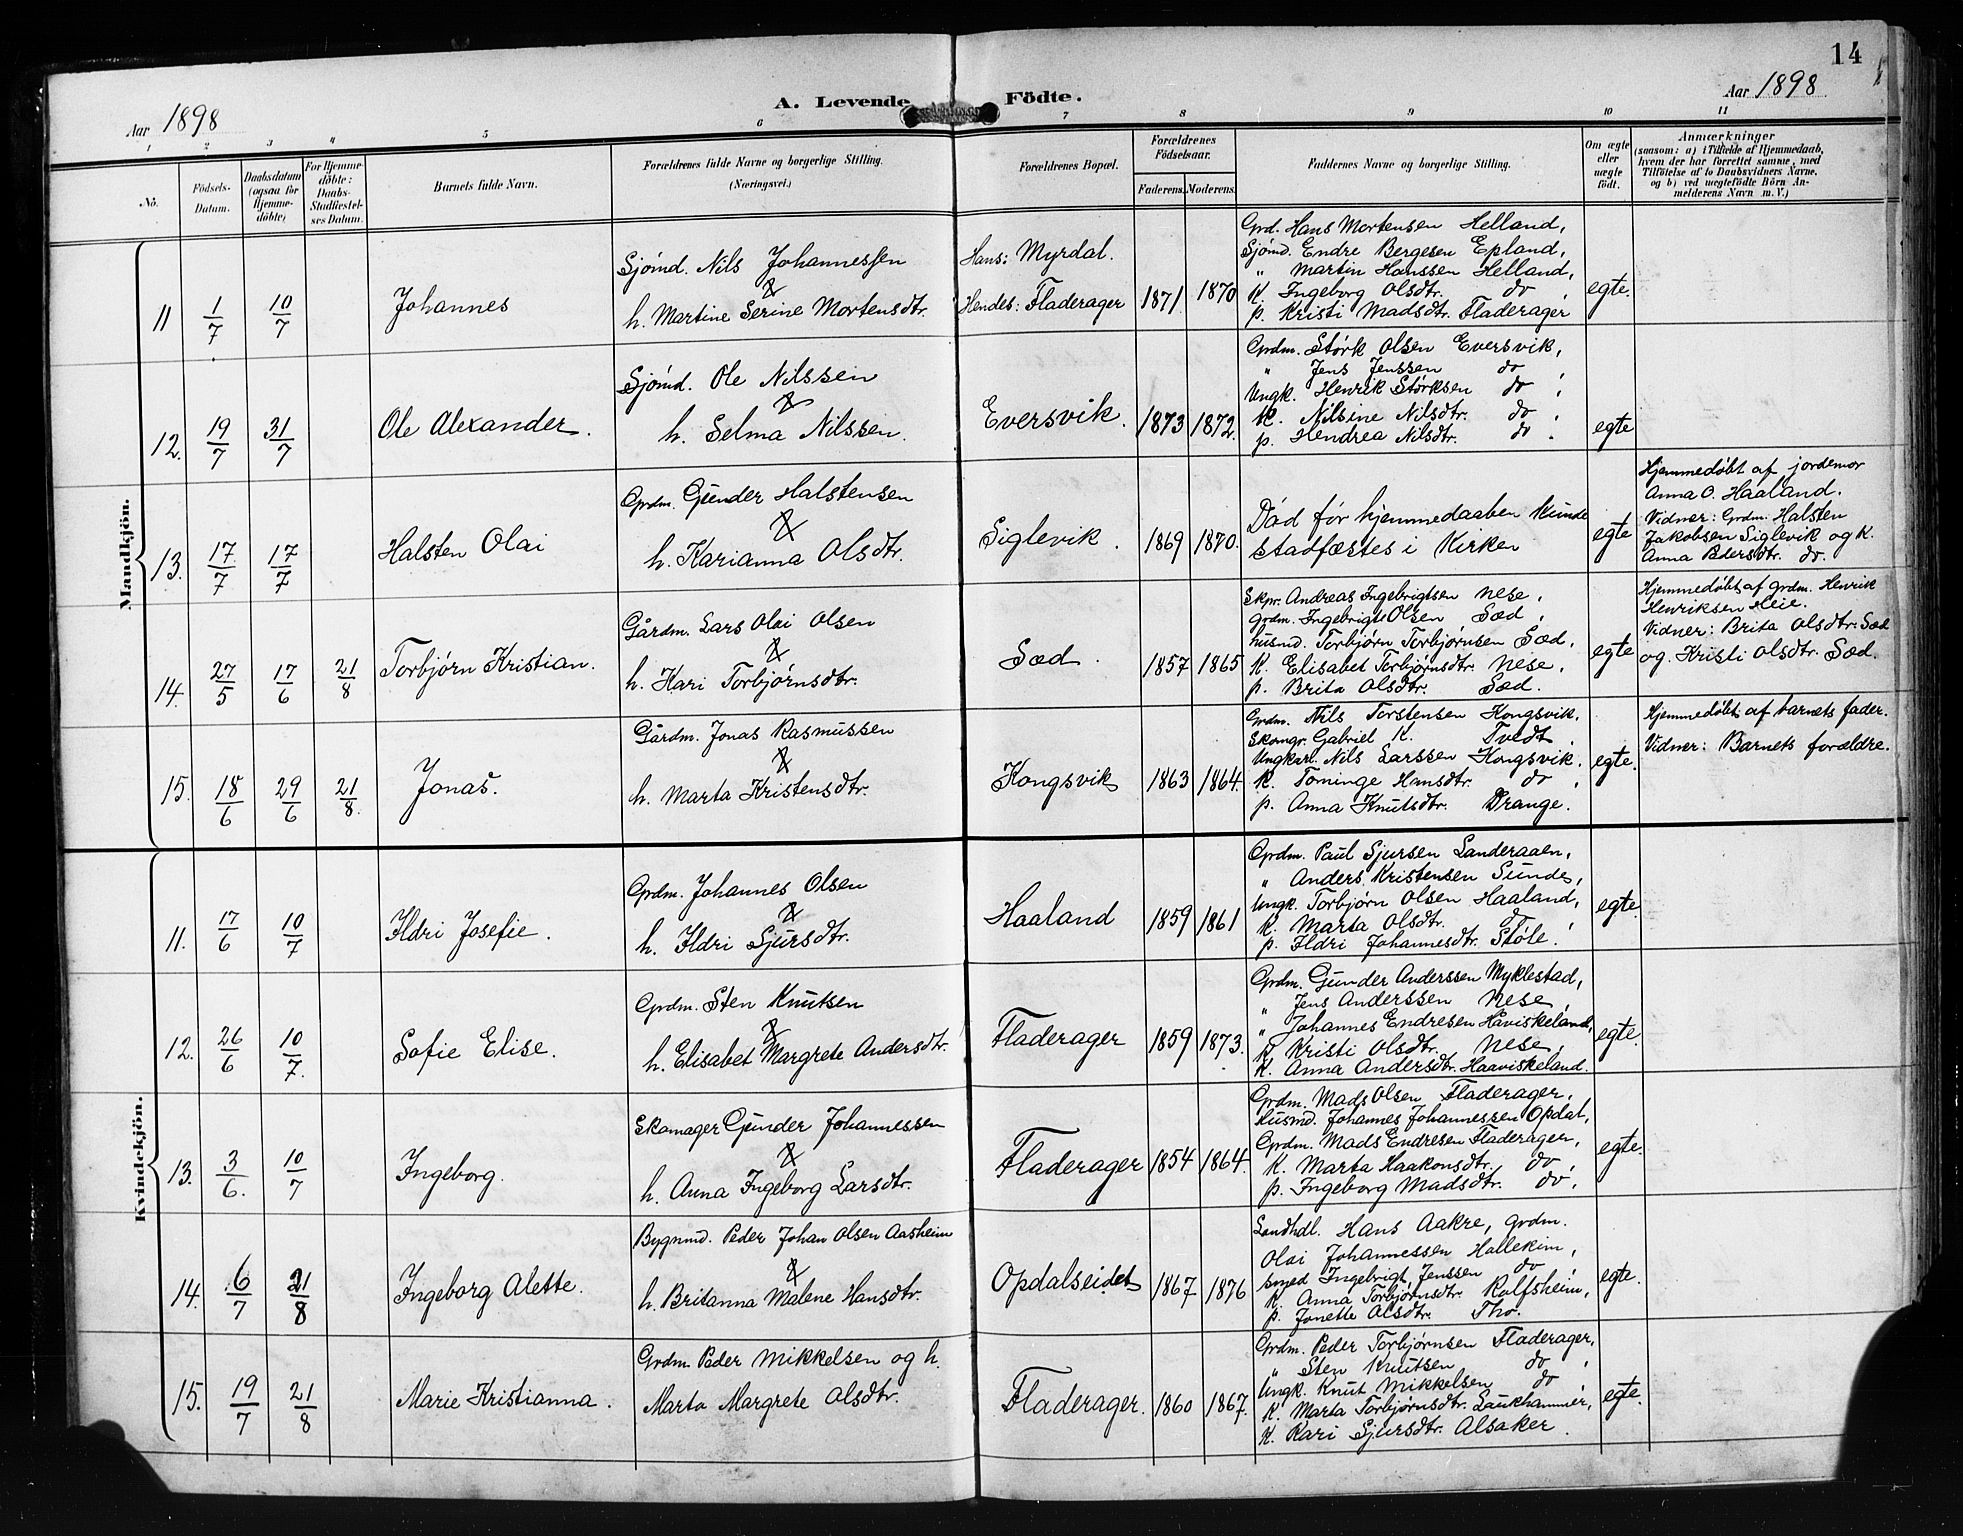 14
Aar 1898
A. Levende Födte.
Aar 1898
1 2 3 4 5 6 7 8 9 10 11
No.
Födsels-Datum.
Daabsdatum (ogsaa for Hjemmedöbte)
For Hjemmedöbte: Daabs-Stadfæstelses Datum.
Barnets fulde Navn.
Forældrenes fulde Navne og borgerlige Stilling.
(Næringsvei.)
Forældrenes Bopæl.
Forældrenes Födselsaar.
Faderens. Moderens.
Faddernes Navne og borgerlige Stilling.
Om ægte eller uægte födt.
Anmærkninger
(saasom: a) i Tilfælde af Hjemmedaab,
hvem der har forrettet samme, med
Tilföielse af to Daabsvidners Navne,
og b) ved uegtefödte Börn An-
melderens Navn m. V.)
Mandkjön.
11 1/7 10/7
Johannes
Sjömd. Nils Johannessen
&
h. Martine Serine Mortensdtr.
Hans: Myrdal.
Hendes: Fladerager
1871. 1870
Grd. Hans Mortensen Helland,
Sjömd. Endre Bergesen Epland,
" Martin Hanssen Helland,
K. Ingeborg Olsdtr. do,
p. Kristi Madsdtr. Fladerager
egte.
12. 19/7 31/7
Ole Alexander.
Sjömd. Ole Nilssen
&
h. Selma Nilssen.
Eversvik.
1873 1872.
Grdm. Störk Olsen Eversvik,
" Jens Jenssen do,
Ungk. Henrik Störksen do,
K. Nilsine Nilsdtr. do.
p. Hendrea Nilsdtr. do.
egte
13. 17/7 17/7
Halsten Olai
Grdm. Gunder Halstensen
&
h. Karianna Olsdtr.
Siglevik.
1869 1870.
Död för hjemmedaaben kunde
stadfæstes i Kirken
egte
Hjemmedöbt af jordemor
Anna O. Haaland.
Vidner: Grdm. Halsten
Jakobsen Siglevik og K.
Anna Pedersdtr. do.
14. 27/5 17/6 21/8
Torbjörn Kristian.
Gårdm. Lars Olai Olsen
&
h. Kari Torbjörnsdtr.
Sæd.
1857 1865
Skpr. Andreas Ingebrigtsen Nese,
grdm. Ingebrigt Olsen Sæd,
husmd. Torbjörn Torbjörnsen Sæd,
K. Elisabet Torbjörnsdtr. Nese,
p. Brita Olsdtr. Sæd.
egte
Hjemmedöbt af grdm. Henrik
Henriksen Heie.
Vidner: Brita Olsdtr. Sæd
og Kristi Olsdtr. Sæd.
15. 18/6 29/6 21/8
Jonas.
Gårdm. Jonas Rasmussen
&
h. Marta Kristensdtr.
Kongsvik
1863 1864.
Grdm. Nils Torstensen Kongsvik,
Skomgr. Gabriel K. Tvedt,
Ungkarl. Nils Larssen Kongsvik,
K. Tominge Hansdtr. do,
p. Anna Knutsdtr. Drange.
egte.
Hjemmedöbt af barnets fader.
Vidner: Barnets forældre.
Kvindekjön.
11. 17/6 10/7
Ildri Josefie.
Grdm. Johannes Olsen
&
h. Ildri Sjursdtr.
Haaland
1859 1861
Grdm. Paul Sjursen Landeraaen,
" Anders Kristensen Sundes,
Ungk. Torbjörn Olsen Haaland,
K. Marta Olsdtr. do,
p. Ildri Johannesdtr. Stöle.
egte.
12. 26/6 10/7.
Sofie Elise.
Grdm. Sten Knutsen
&
h. Elisabet Margrete Andersdtr.
Fladerager
1859 1873.
Grdm. Gunder Anderssen Myklestad,
" Jens Anderssen Nese,
" Johannes Endresen Håviskeland,
K. Kristi Olsdtr. Nese,
K. Anna Andersdtr. Haaviskeland.
egte.
13. 3/6. 10/7
Ingeborg.
Skomager Gunder Johannessen
&
h. Anna Ingeborg Larsdtr.
Fladerager
1854 1864.
Grdm. Mads Olsen Fladerager,
Husmd. Johannes Johannessen Opdal,
Grdm. Mads Endresen Fladerager,
K. Marta Haakonsdtr. do,
p. Ingeborg Madsdtr. do,
egte.
14. 6/7 21/8
Ingeborg Alette.
Bygnmd. Peder Johan Olsen Aasheim
&
h. Britanna Malene Hansdtr.
Opdalseidet
1867 1876
Landhdl. Hans Aakre, grdm.
Olai Johannessen Hallekim,
smed Ingebrigt Jenssen do
K. Anna Torbjörnsdtr. Rolfsheim,
p. Jonette Olsdtr. Tho.
egte.
15. 19/7 21/8
Marie Kristianna.
Grdm. Peder Mikkelsen og h.
Marta Margrete Olsdtr.
Fladerager.
1860 1867.
Grdm. Peder Torbjörnsen Fladerager,
" Sten Knutsen do,
Ungk. Knut Mikkelsen do,
K. Marta Torbjörnsdtr. Laukhammer,
K. Kari Sjursdtr. Alsaker.
egte.